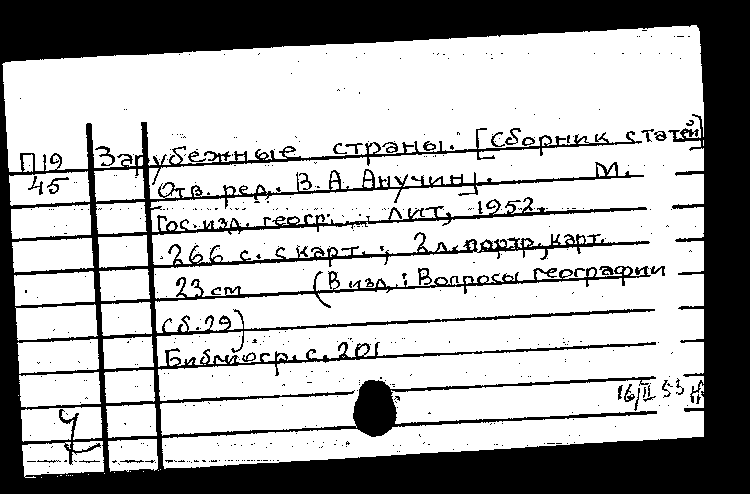 П19 Зарубежные страны. [Сборник статей]
45 Отв. ред. В. А. Анучин]. М.
Гос. изд. геогр. лит, 1952.
266 с. с карт.; 2 л. портр., карт.
23 см (В изд.: Вопросы географии
сб. 29)
Библиогр. с. 201
16/II 53